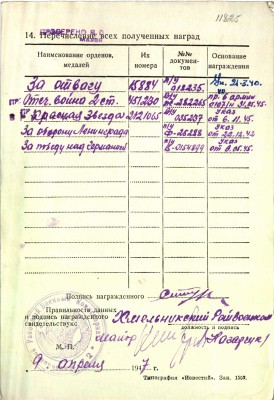 11825
ПРОВЕРЕНО В.О.
14. Перечисление всех полученных наград
Наименование орденов, медалей
Их номера
№№ документов
Основание награждения
За отвагу 15881 п/у 018235. 21-X.40.
Отеч. война 2 ст. 451230 282265 пр. 6 армии
Красная Звезда 2121065 п/у 035237 Указ от 6.11.45.
За оборону Ленинграда п/у Ф-25288 Указ от 22.12.42
За победу над Германией п/у Указ от 9.05.45.
Подпись награжденного
Правильность данных и подпись награжденного свидетельствую
Хмельникский Райвоенком
должность и подпись
майор
М.П.
9 апреля 1947 г.
Типография «Известий». Зак. 1509.